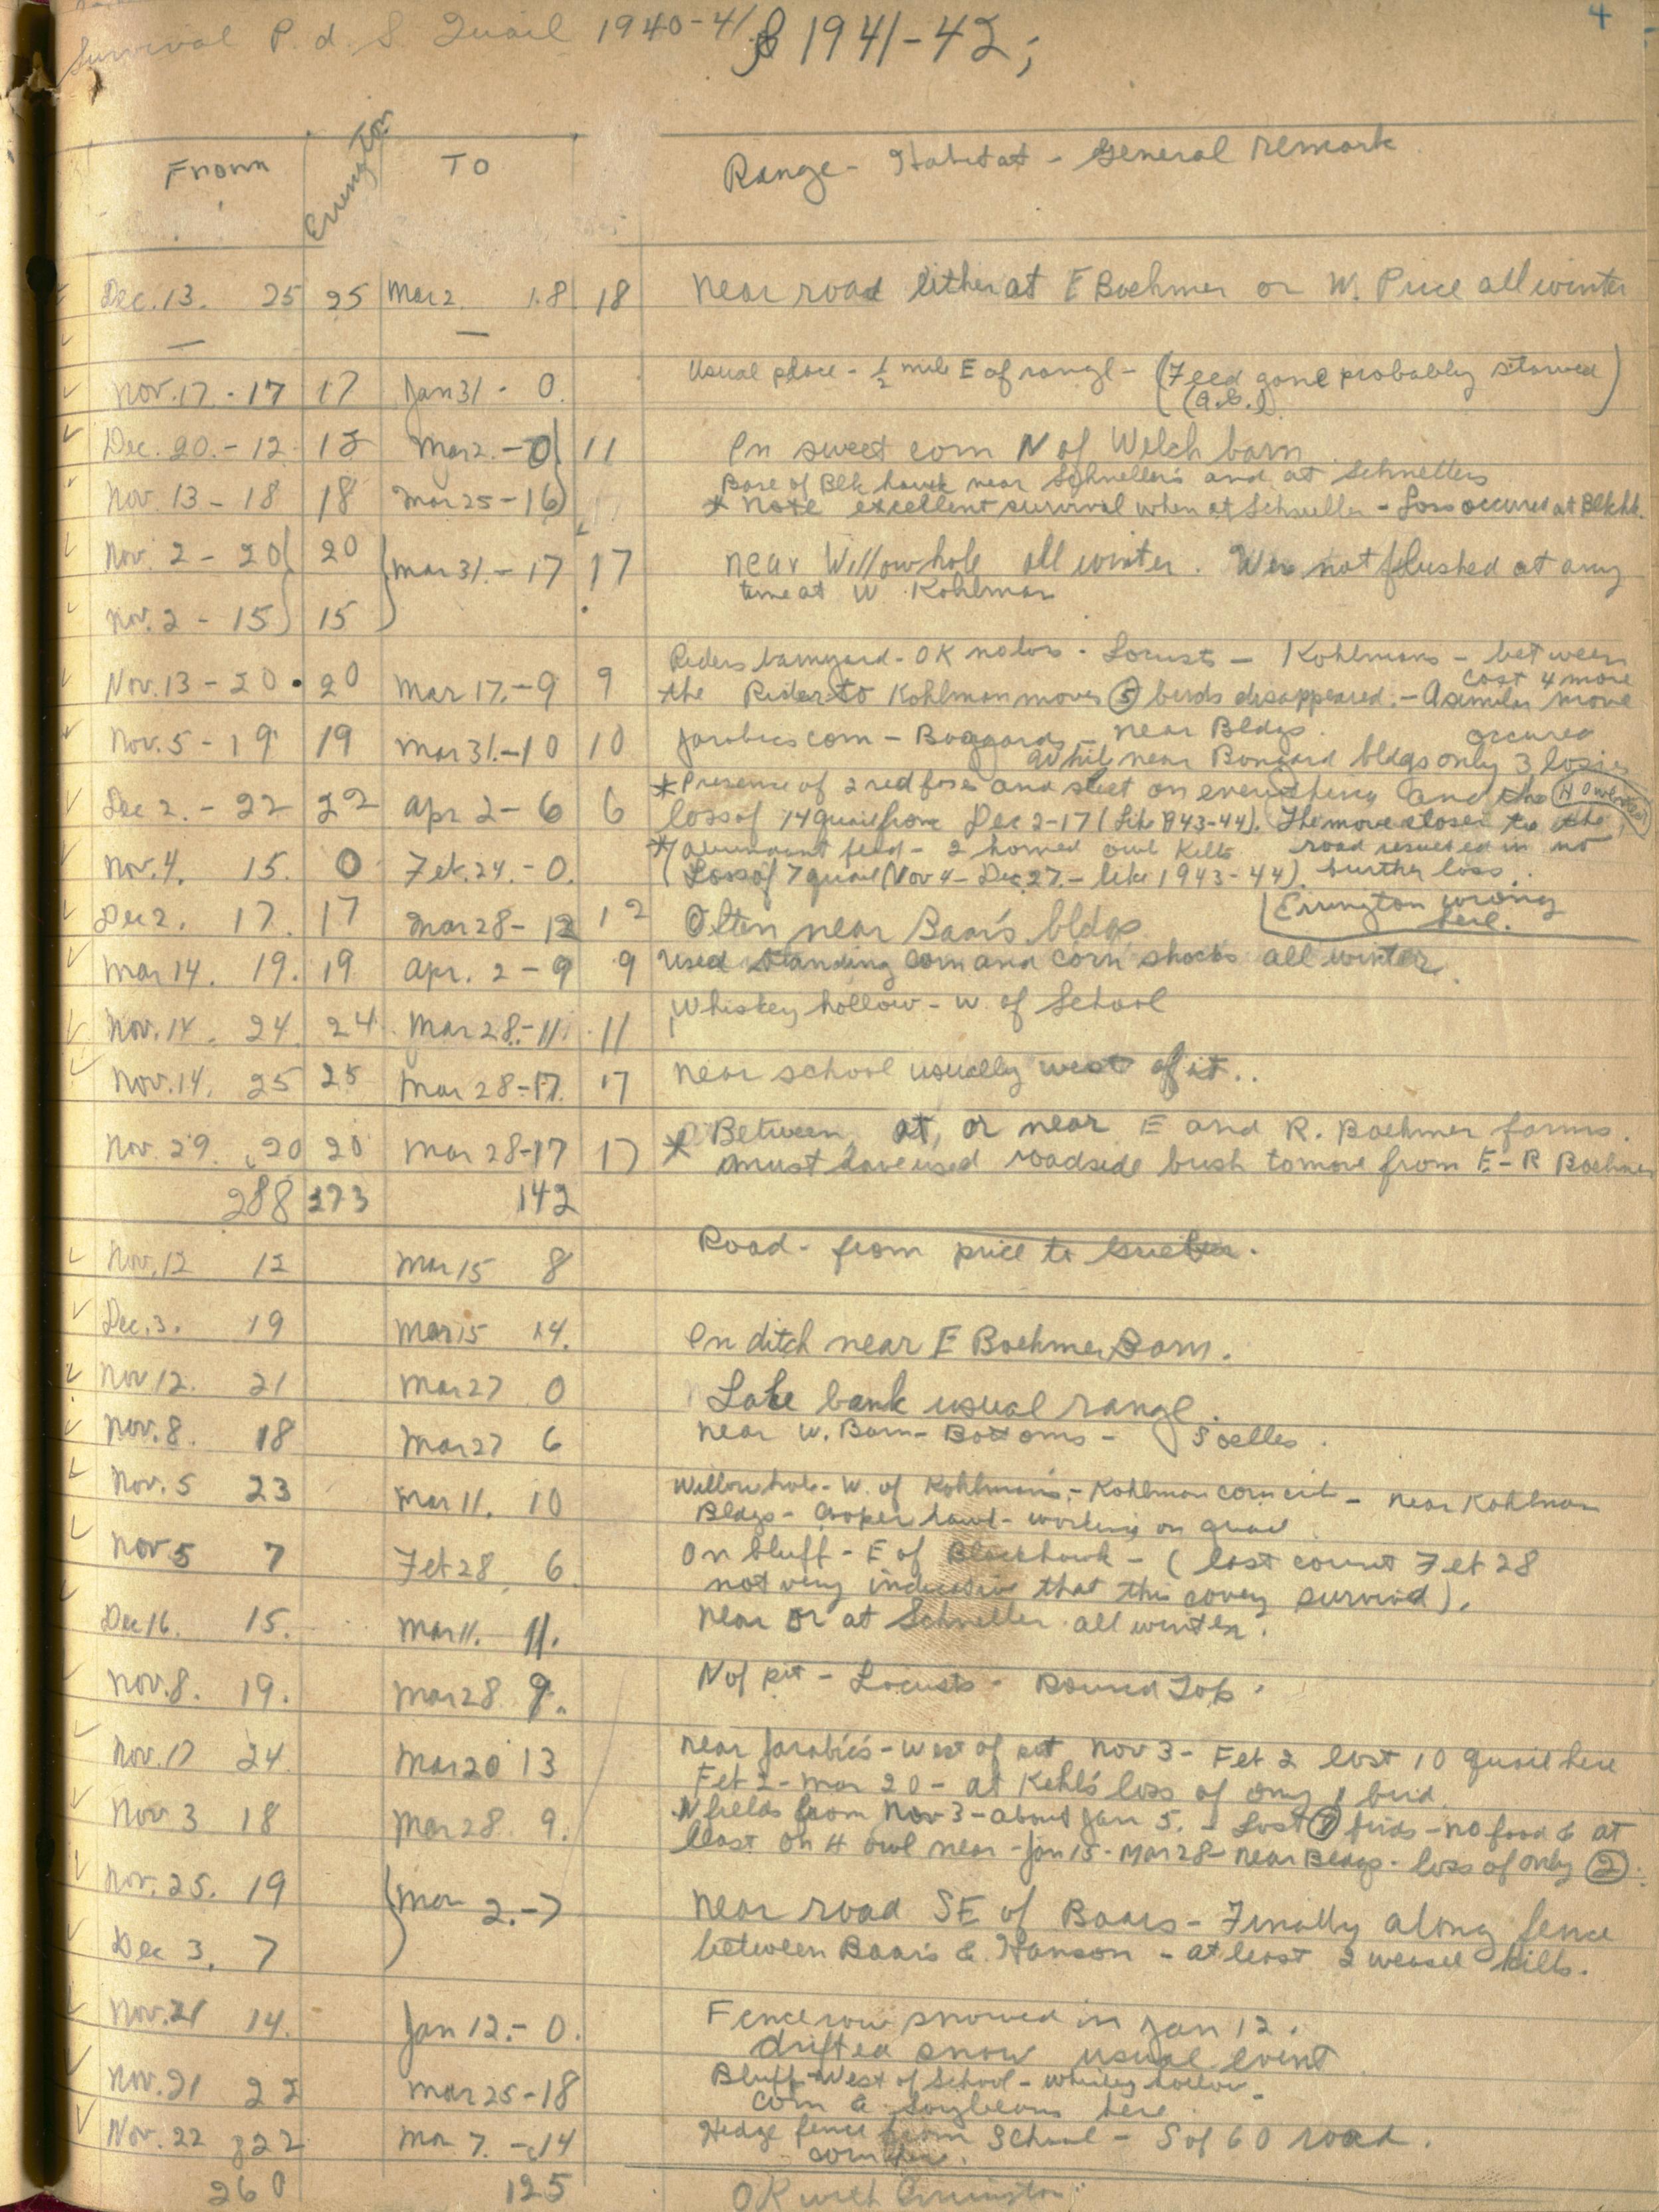 Survival P. d. S Quail 1940-41 & 1941-42;
4
From Errington TO Range - Habitat - General remark
Dec. 13. 25 25 Mar 2. 18 18 Near road either at E Boehmer or W. Price all winter
— —
Nov. 17 - 17 17 Jan 31 - 0. Usual place - 1/2 mile E of range - (Feed gone probably starved)
(A.G.)
Dec. 20. - 12 12 Mar 2. - 0 11 In sweet corn N of Welch barn.
Base of Blk hawk near Schnellers and at Schnellers
Nov. 13 - 18 18 Mar 25 - 16) * Note excellent survival when at Schneller - Loss occured at Blkhk.
Nov. 2 - 20 20 Mar 31. - 17 17 near Willowhole all winter. Were not flushed at any
time at W. Kohlman
Nov. 2 - 15 15
Riders barnyard - OK no loss - Locusts - Kohlmans - between
Nov. 13 - 20 20 Mar 17. - 9 9 the Rider to Kohlman moves (5) birds disappeared. - A similar move
cost 4 more
Nov. 5 - 19 19 Mar 31. - 10 10 Jarabecs corn - Boggards - near Bldgs. occured
while near Bongard bldgs only 3 losses
* Presence of 2 red foxes and sleet on everything and the H Owl
Dec 2. - 22 22 Apr 2 - 6 6 loss of 14 quail from Dec 2-17 (like 1943-44). The move closer to the
road resulted in no
further loss.
Nov. 4. 15. 0 Feb. 24. - 0. * (abundant feed - 2 horned owl kills
(Loss of 7 quail (Nov 4 - Dec 27. - like 1943-44)
Errington wrong
here.
Dec 2. 17. 17 Mar 28 - 12 12 Often near Baar's bldgs
Mar 14. 19. 19 Apr. 2 - 9 9 Used standing corn and corn shocks all winter.
Nov. 14. 24. 24 Mar 28. - 11. 11 Whiskey hollow - W. of School
Nov. 14. 25 25 Mar 28 - 17. 17 near school usually west of it..
Nov. 29. 20 20 Mar 28 - 17 17 * Between, at, or near E and R. Boehmer farms.
must have used roadside brush to move from E - R Boehmer
288 273 142
Nov. 12 12 Mar 15 8 Road - from price to
Dec. 3. 19 Mar 15 14. In ditch near E Boehmer Barn.
Nov 12. 21 Mar 27 0 Lake bank usual range.
Nov. 8. 18 Mar 27 6 near W. Barn - Bottoms - Soelles.
Nov. 5 23 Mar 11. 10 Willowhole - W. of Kohlman's - Kohlman corn crib - near Kohlman
Bldgs - Cooper hawk - working on quail
Nov 5 7 Feb 28. 6. On bluff - E of Blackhawk - (last count Feb 28
not very indicative that this covey survived).
Dec 16. 15. Mar 11. 11. Near or at Schneller all winter.
Nov. 8. 19. Mar 28 9. N of pit - Locusts - Round Top.
Nov. 17 24 Mar 20 13 Near Jarabec's - West of pit Nov 3 - Feb 2 lost 10 quail here
Feb 2 - Mar 20 - at Kehl's loss of only 1 bird.
Nov 3 18 Mar 28 9. N fields from Nov 3 - about Jan 5. - Lost (7) birds - no food & at
least on H owl near - Jan 15 - Mar 28 - near Bldgs - loss of only (2).
Nov. 25. 19 Mar 2. - 7 Near road SE of Baars - Finally along fence
Dec 3. 7 between Baars & Hanson - at least 2 weasel kills.
Nov. 21 14. Jan 12. - 0. Fencerow snowed in Jan 12.
drifted snow usual event
Nov. 21 22 Mar 25 - 18 Bluff - West of School - Whiskey hollow -
Corn & Soybeans here.
Nov. 22 22 Mar 7. - 14 Hedge fence from School - S of 60 road.
corn
260 125 OK with Errington